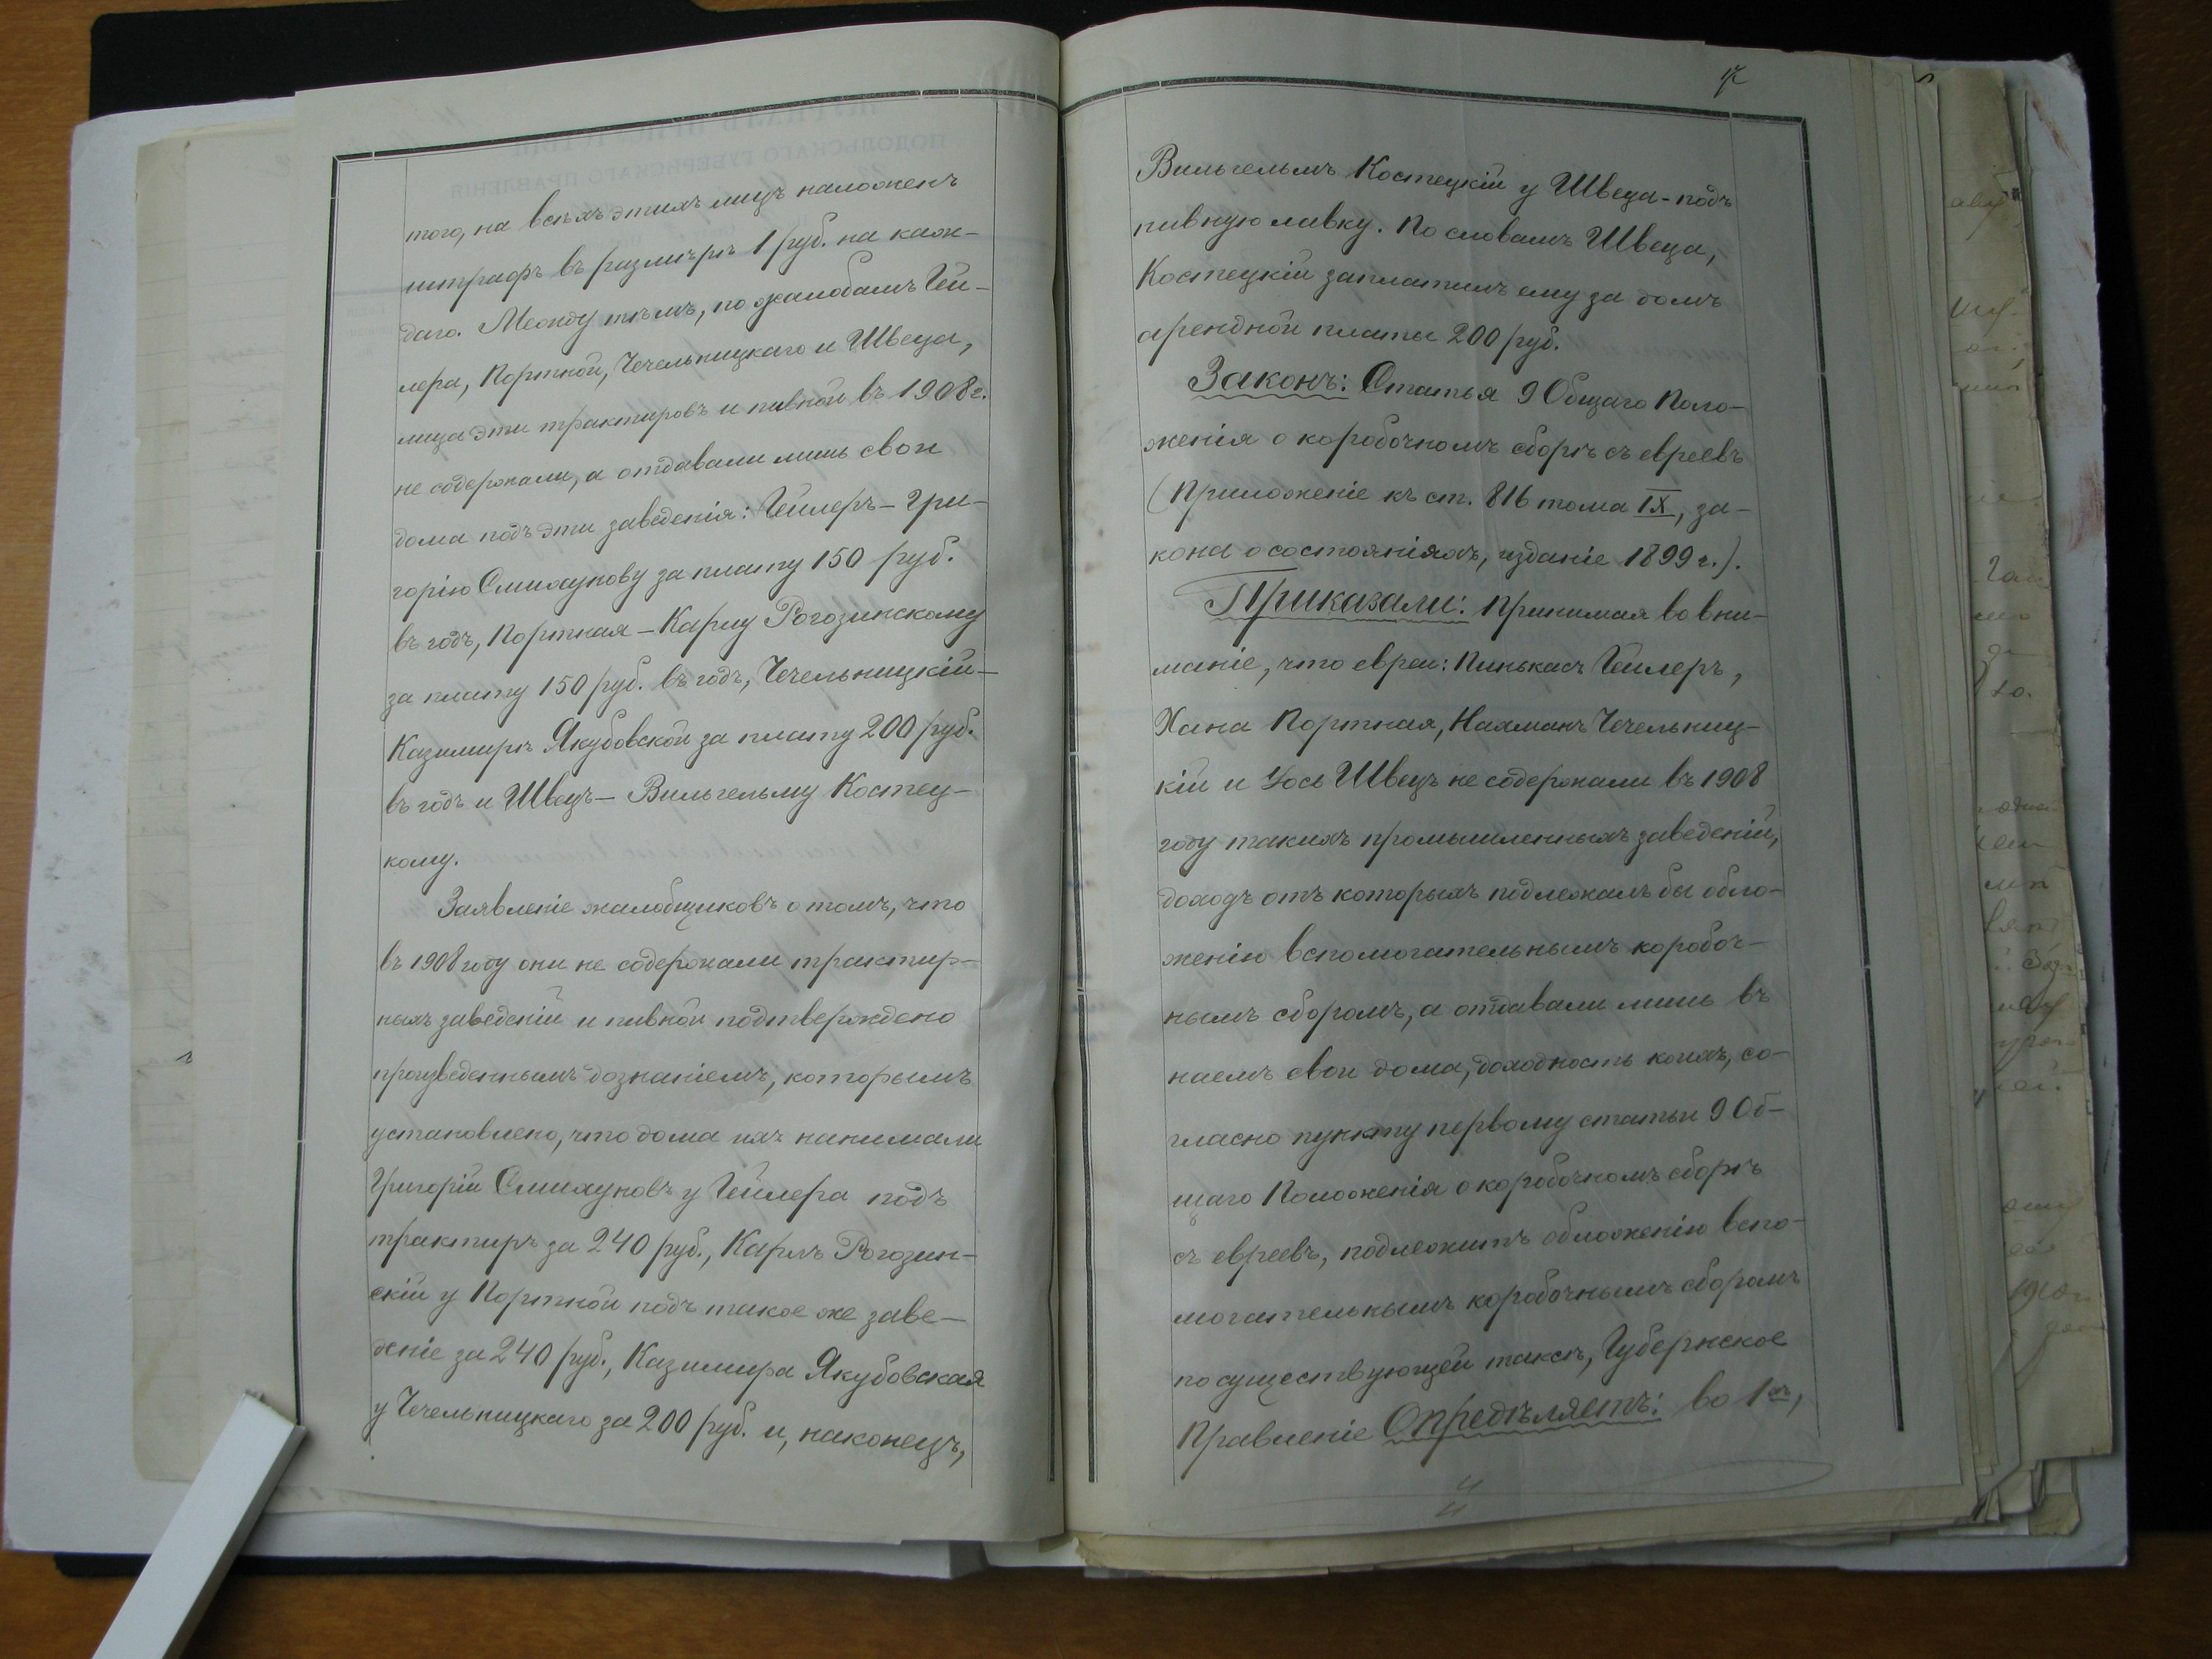 того, на всѣхъ этихъ лицъ наложенъ
штрафъ въ размѣрѣ 1 руб. на каж-
даго. Между тѣмъ, по жалобамъ Гей-
лера, Портной, Чечельницкаго и Швеца,
лица эти трактировъ и пивной въ 1908 г.
не содержали, а отдавали лишь свои
дома подъ эти заведенія: Гейлеръ - Гри-
горію Смилхунову за плату 150 руб.
въ годъ, Портная - Карлу Рогозинскому
за плату 150 руб. въ годъ, Чечельницкій -
Казимирѣ Якубовской за плату 200 руб.
въ годъ и Швецъ - Вильгельму Костец-
кому.
Заявленіе жалобщиковъ о томъ, что
въ 1908 году они не содержали трактир-
ныхъ заведеній и пивной подтверждено
произведеннымъ дознаніемъ, которымъ
установлено, что дома ихъ нанимали
Григорій у Гейлера подъ
трактиръ за 240 руб., Карлъ Рогозин-
скій у Портной подъ такое же заве-
деніе за 240 руб., Казимира Якубовская
у Чечельницкаго за 200 руб. и, наконецъ,
Вильгельмъ Костецкій у Швеца - подъ
пивную лавку. По словамъ Швеца,
Костецкій заплатилъ ему за домъ
арендной платы 200 руб.
Законъ: Статья 9 Общаго Поло-
женія о коробочномъ сборѣ съ евреевъ
(Приложеніе къ ст. 816 тома IX, за-
кона о состояніяхъ, изданіе 1899 г.).
Приказали: Принимая во вни-
маніе, что евреи: Пинькасъ Гейлеръ,
Хана Портная, Нахманъ Чечельниц-
кій и Іось Швецъ не содержали въ 1908
году такихъ промышленныхъ заведеній,
доходъ отъ которыхъ подлежалъ бы обло-
женію вспомогательнымъ коробоч-
нымъ сборомъ, а отдавали лишь въ
наемъ свои дома, доходность коихъ, со-
гласно пункту первому статьи 9 Об-
щаго Положенія о коробочномъ сборѣ
съ евреевъ, подлежитъ обложенію вспо-
могательнымъ коробочнымъ сборомъ
по существующей таксѣ, Губернское
Правленіе Опредѣляетъ: во 1хъ,